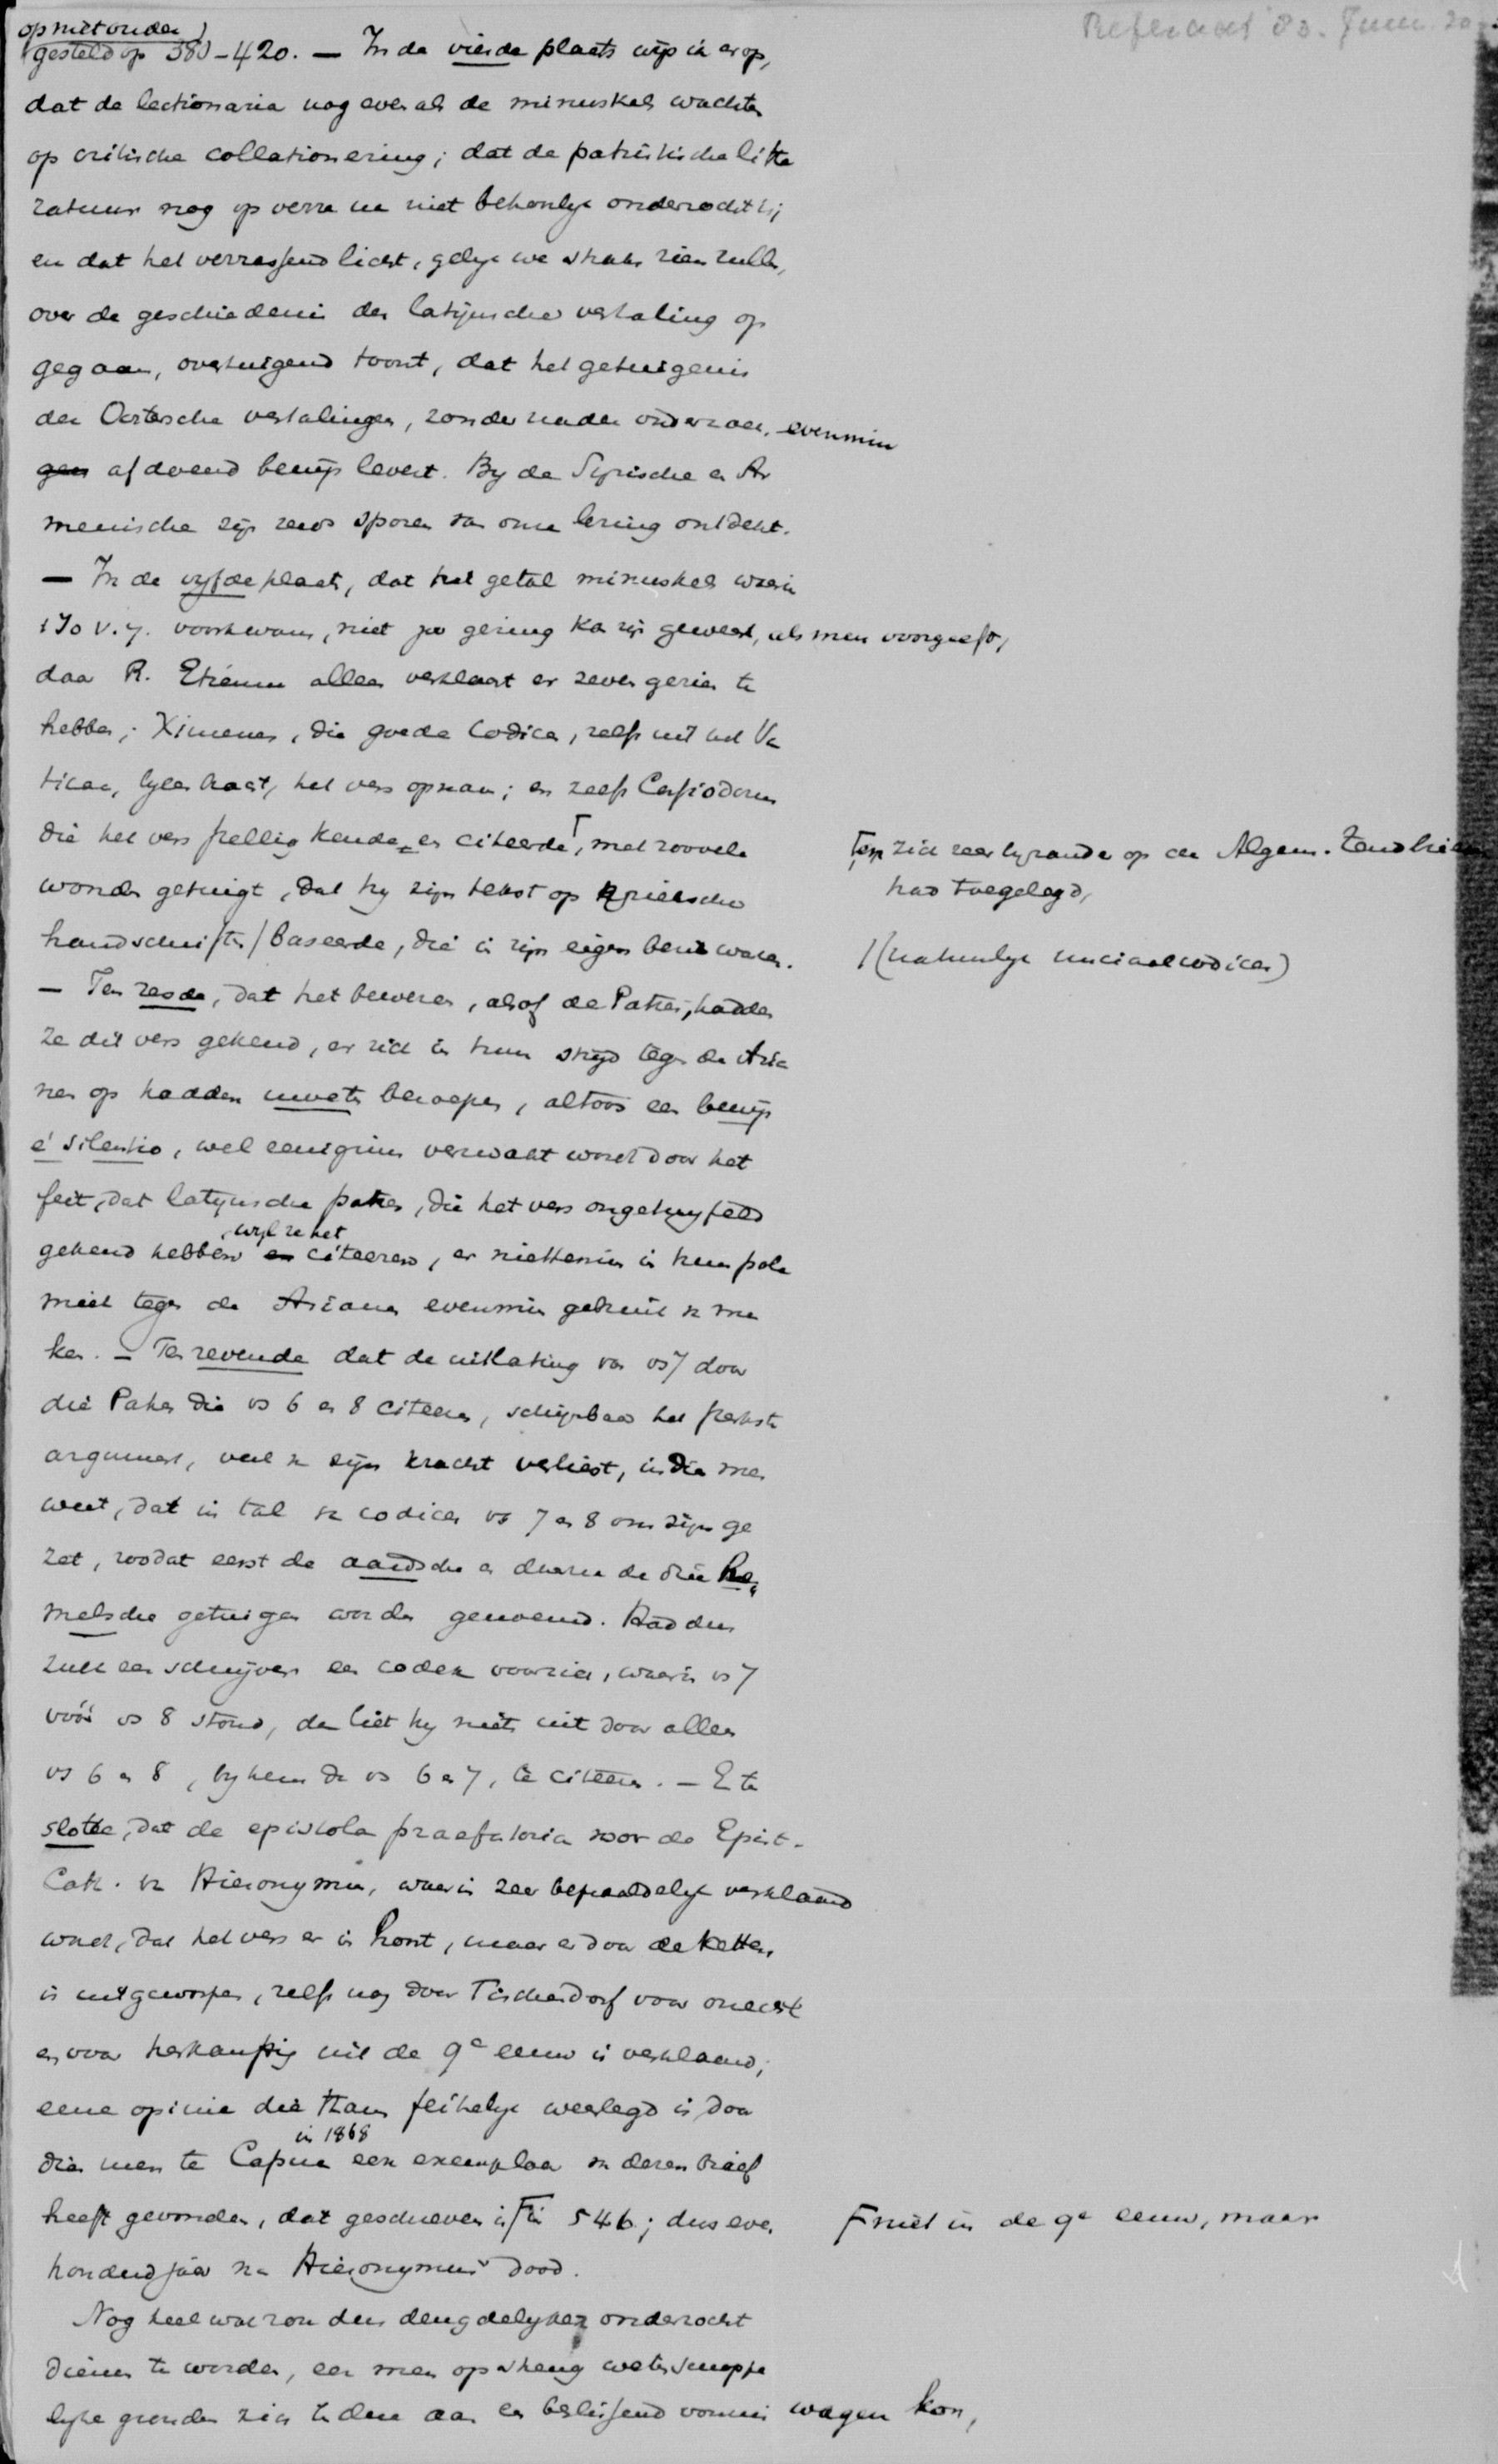 Referaat 83. Juni 20
op niet ouder
gesteld op 380-420. — In de vierde plaats wijs ik erop,
dat de lectionaria nog even als de minuskels wachten
op critische collationering; dat de patristische litte
ratuur nog op verre na niet behoorlyk onderzocht is;
en dat het verrassend licht, gelyk we straks zien zullen,
over de geschiedenis der latijnsche vertaling op
gegaan, overtuigend toont, dat het getuigenis
der Oostersche vertalingen, zonder nader onderzoek, evenmin
geen afdoend bewijs levert. By de Syrische en Ar
menische zijn reeds sporen van onze lezing ontdekt.
— In de vyfde plaats, dat het getal minuskels waarin
1 Jo V. 7. voorkwam, niet zoo gering kan zijn geweest, als men voorgeeft,
daar R. Etienne alleen verklaart er zeven gezien te
hebben; Ximenes, die goede codices, zelfs uit het Va
ticaan, bijeen bracht, het vers opnam; en zelfs Cassiodorus
die het vers stellig kende en citeerde, met zoovele
en zich zeer byzonder op den Algem. Zendbrieven
had toegelegd,
woorden getuigt, dat hy zijn tekst op grieksche
handschriften baseerde, die in zijn eigen bezit waren.
(natuurlyk unciaalcodices)
— Ten zesde, dat het beweren, alsof de Patres, hadden
ze dit vers gekend, er zich in hun strijd tegen de Aria
nen op hadden moeten beroepen, altoos een bewijs
e silentio, wel eenigzins verzwakt wordt door het
feit, dat latynsche patres, die het vers ongetwyfeld
gekend hebben wyl ze het en citeeren, er niettemin in hun pole
miek tegen de Arianen evenmin gebruik van ma
ken. — Ten zevende dat de uitlating van vs 7 door
die Patres die vs 6 en 8 citeeren, schijnbaar het sterkste
argument, veel van zijn kracht verliest, indien men
weet, dat in tal van codices vs 7 en 8 om zijn ge
zet, zoodat eerst de aardsche en daarna de drie he
melsche getuigen worden genoemd. Had dus
zulk een schrijver een codex voor zich, waarin vs 7
vóór vs 8 stond, dan liet hy niets uit door alleen
vs 6 en 8, by hem de vs 6 en 7, te citeeren. — En ten
slotte, dat de epistola praefatoria voor de Epist.
Cath. van Hieronymus, waarin zeer bepaaldelyk verklaard
wordt, dat het vers er in hoort, maar er door de ketters
is uitgeworpen, zelfs nog door Tischendorf voor onecht
en voor herkomstig uit de 9e eeuw is verklaard;
eene opinie die thans feitelyk weerlegd is, door
dien men te Capua in 1868 een exemplaar van dezen brief
heeft gevonden, dat geschreven is in 546; dus even
niet in de 9e eeuw, maar
honderd jaar na Hieronymus' dood.
Nog heel wat zou dus deugdelyker onderzocht
dienen te worden, eer men op streng wetenschappe
lyke gronden zich ten deze aan een beslissend vonnis wagen kon,